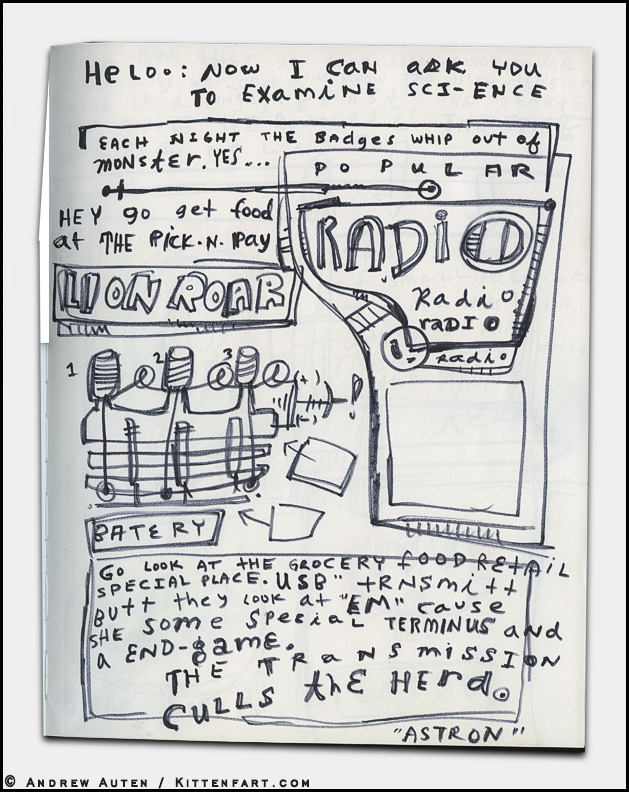 HeLoo: NOW I CAN ASK YOU
TO EXAMINE SCI-ENCE
EACH NIGHT THE BADGES WHIP OUT OF
MONSTER. YES...
POPULAR
HEY GO get food
at THE PICK-N-PAY
RADIO
Radio
RADIO
Radio
LION ROAR
1 2 3
(+)
(-)
BATERY
GO LOOK AT THE GROCERY FOOD RETAIL
SPECIAL PLACE. USB" tRNSmitt
BUTT they LOOK at "EM" cause
SHE some special TERMINUS AND
a END-game.
THE TRANSMISSION
CULLS thE HERD.
"ASTRON"
© ANDREW AUTEN / KITTENFART.COM